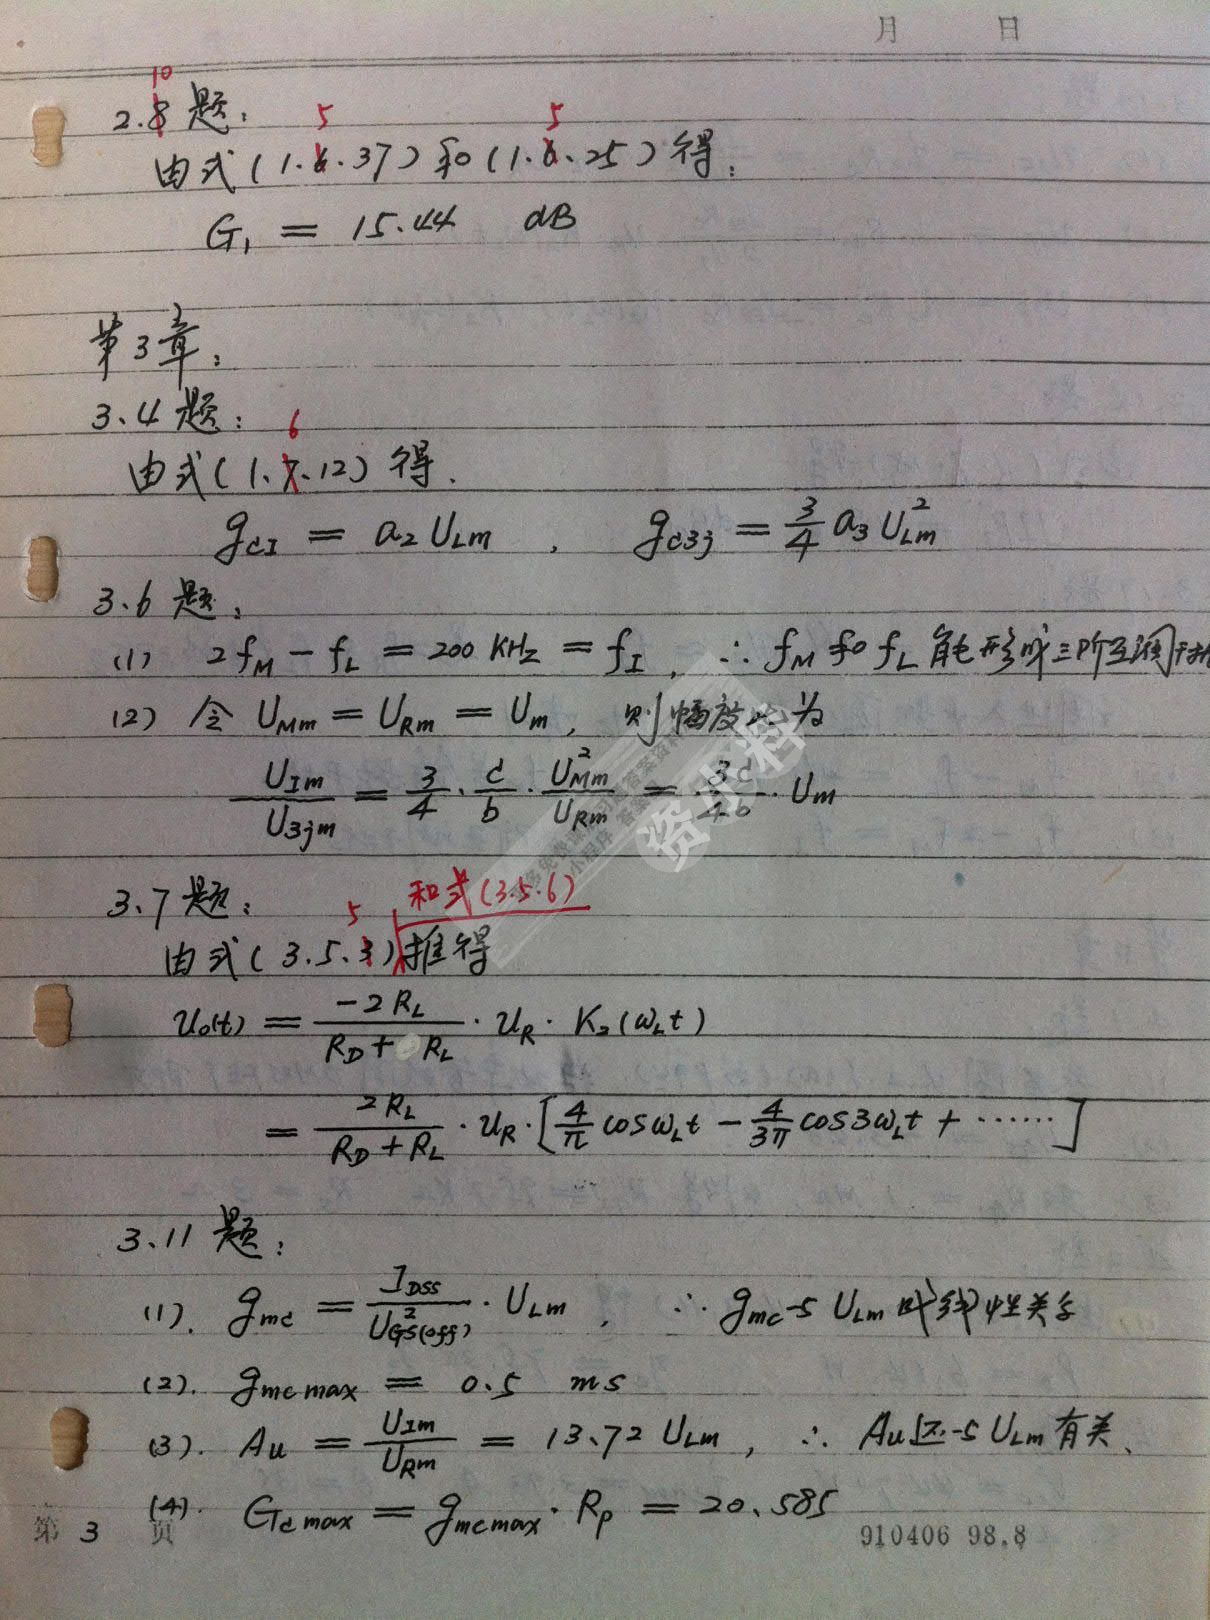 月 日
10
2.8 题:
5 5
由式(1.6.37)和(1.6.25)得:
G₁ = 15.44 dB
第3章:
3.4 题:
6
由式(1.7.12)得.
g_cI = a₂ U_Lm , g_c3j = 3/4 a₃ U²_Lm
3.6 题:
(1) 2f_M − f_L = 200 KHz = f_I , ∴ f_M 和 f_L 能形成三阶互调干扰
(2) 令 U_Mm = U_Rm = U_m , 则幅度比为
U_Im / U_3jm = 3/4 · c/b · U²_Mm / U_Rm = 3c/4b · U_m
资料
小程序
3.7 题:
5 和式(3.5.6)
由式(3.5.3)推得
u₀(t) = −2R_L / (R_D + R_L) · u_R · K₂(ω_L t)
= 2R_L / (R_D + R_L) · u_R · [4/π cosω_L t − 4/3π cos3ω_L t + ……]
3.11 题:
(1). g_mc = I_DSS / U²_GS(off) · U_Lm , ∴ g_mc 与 U_Lm 成线性关系
(2). g_mcmax = 0.5 ms
(3). Au = U_Im / U_Rm = 13.72 U_Lm , ∴ Au 还与 U_Lm 有关.
(4). G_cmax = g_mcmax · R_p = 20.585
第 3 页 910406 98.8